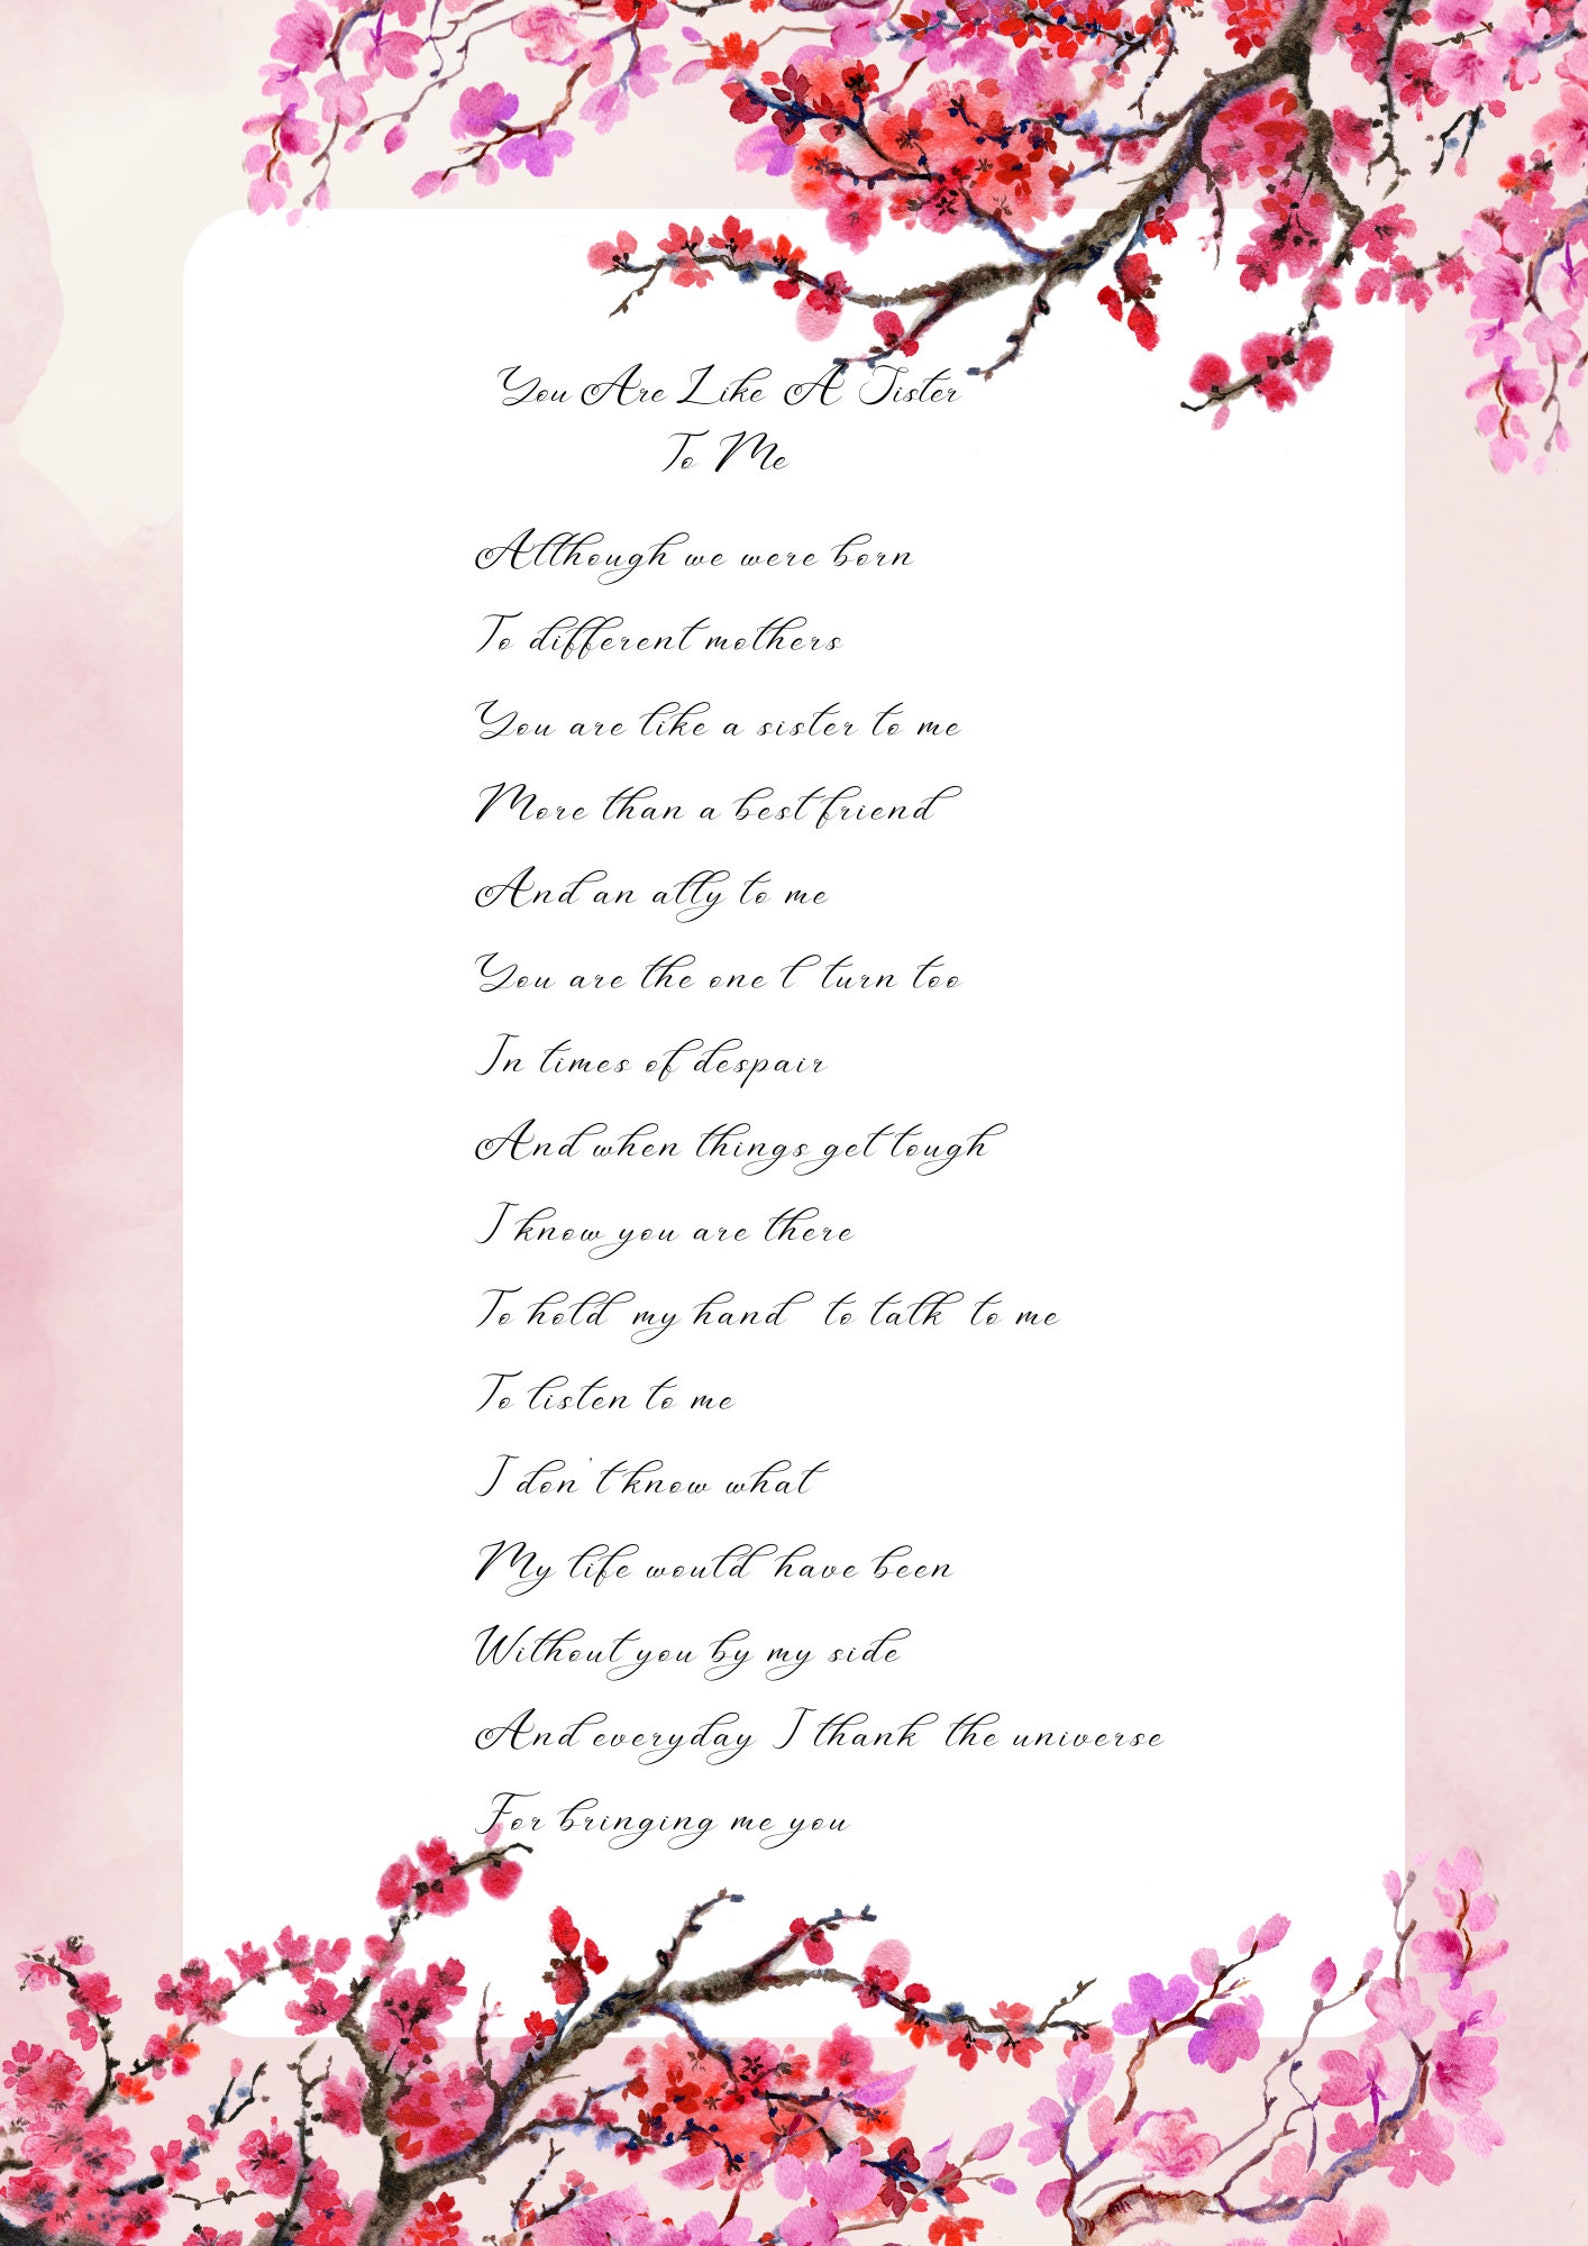 You Are Like A Sister
To Me
Although we were born
To different mothers
You are like a sister to me
More than a best friend
And an ally to me
You are the one l turn too
In times of despair
And when things get tough
I know you are there
To hold my hand to talk to me
To listen to me
I don't know what
My life would have been
Without you by my side
And everyday I thank the universe
For bringing me you